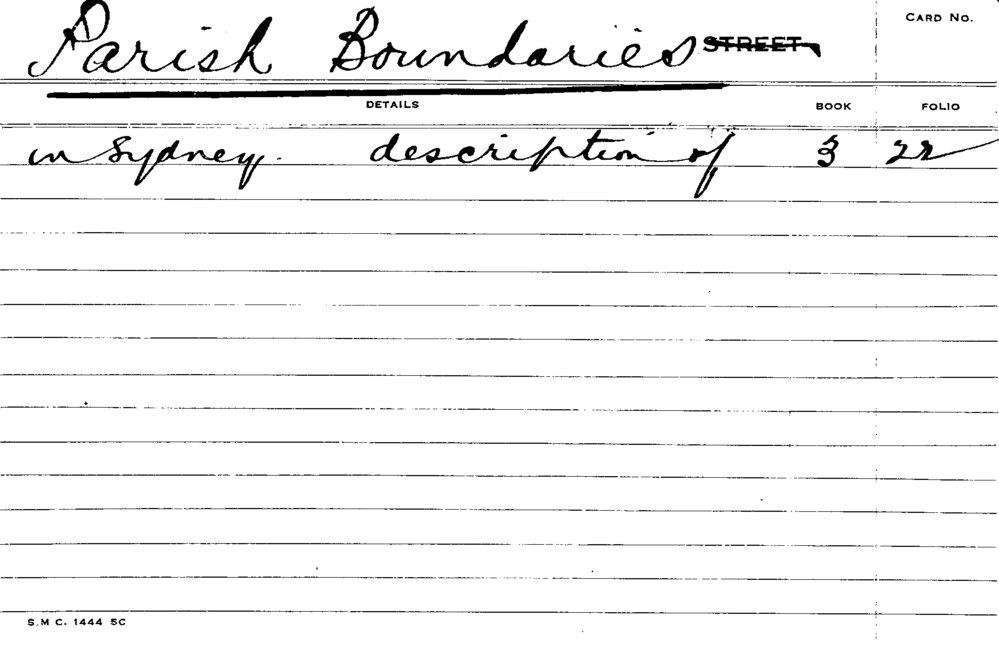 CARD NO.
Parish Boundaries STREET
DETAILS BOOK FOLIO
in Sydney. description of 3 22
S.M C. 1444 5C